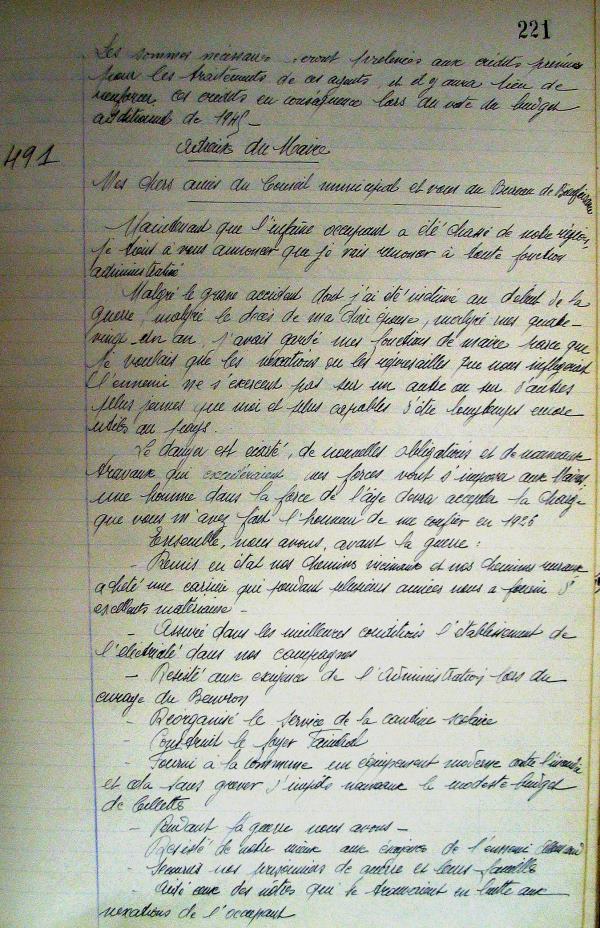 221
Les sommes nécessaires seront prélevées aux crédits prévus
pour les traitements de ces agents, et il y aura lieu de
renforcer ces crédits en conséquence lors du vote du budget
additionnel de 1945 -
491
Adieux du Maire
Mes chers amis du Conseil municipal et vous du Bureau de Bienfaisance
Maintenant que l'infâme occupant a été chassé de notre région,
je tiens à vous annoncer que je vais renoncer à toute fonction
administrative
Malgré le grave accident dont j'ai été victime au début de la
guerre, malgré le décès de ma chère épouse, malgré mes quatre-
vingt-un an, j'avais gardé mes fonctions de maire parce que
je voulais que les vexations ou les représailles que nous infligerait
l'ennemi ne s'exercent pas sur un autre ou sur d'autres
plus jeunes que moi et plus capables d'être longtemps encore
utiles au pays.
Le danger est écarté, de nouvelles obligations et de nouveaux
travaux qui excéderaient mes forces vont s'imposer aux Maires
une homme dans la force de l'âge devra accepter la charge
que vous m'avez fait l'honneur de me confier en 1925
Ensemble, nous avons, avant la guerre :
- Remis en état nos chemins vicinaux et nos chemins ruraux
acheté une carrière qui pendant plusieurs années nous a fourni d'
excellents matériaux -
- Assuré dans les meilleures conditions l'établissement de
l'électricité dans nos campagnes
- Résisté aux exigences de l'Administration lors du
curage du Beuvron
- Réorganisé le service de la cantine scolaire
- Construit le foyer
- Fourni à la commune un équipement moderne contre l'incendie
et cela sans grever d'impôts nouveaux le modeste budget
de Cellettes
- Pendant la guerre nous avons -
- Résisté de notre mieux aux exigences de l'ennemi
- Secouru nos prisonniers de guerre et leurs famille
- Aidé ceux des nôtres qui se trouvaient en butte aux
vexations de l'occupant